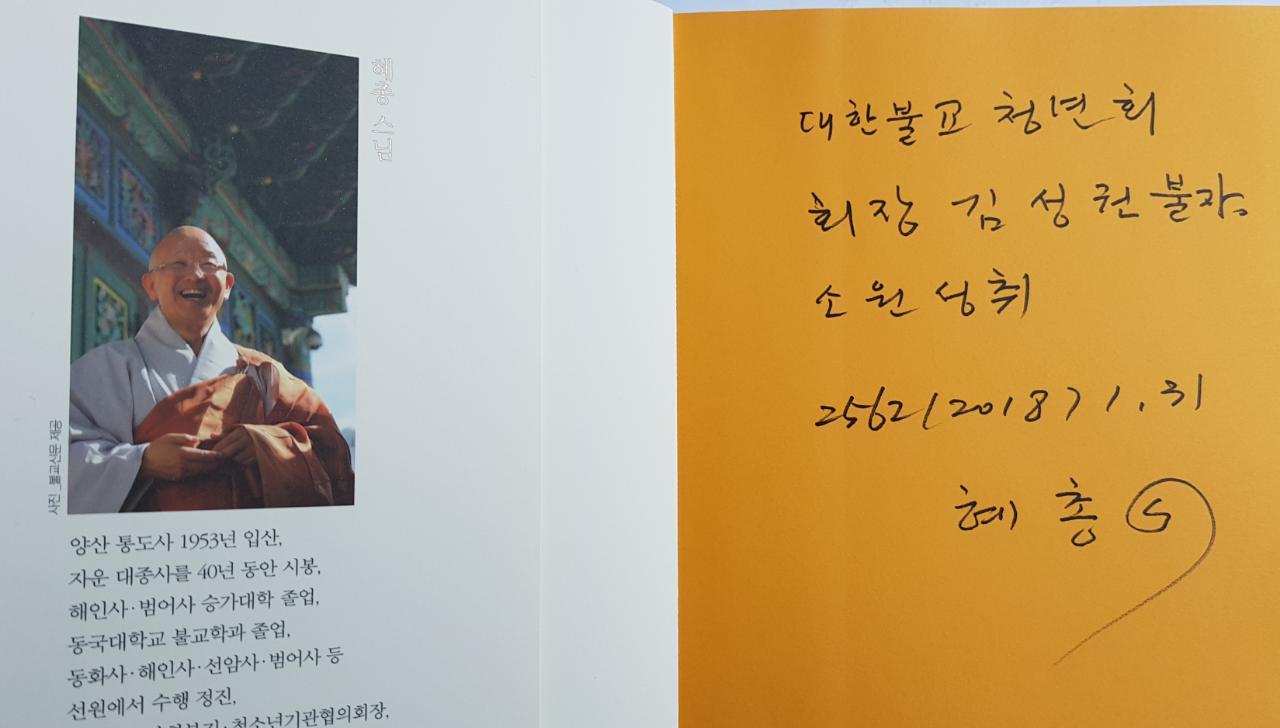 혜총 스님
사진_불교신문 제공
양산 통도사 1953년 입산,
자운 대종사를 40년 동안 시봉,
해인사·범어사 승가대학 졸업,
동국대학교 불교학과 졸업,
동화사·해인사·선암사·범어사 등
선원에서 수행 정진,
청소년기관협의회장,
대한불교 청년회
회장 김성권 불자
소원성취
2562/2018 7 1. 31
혜총